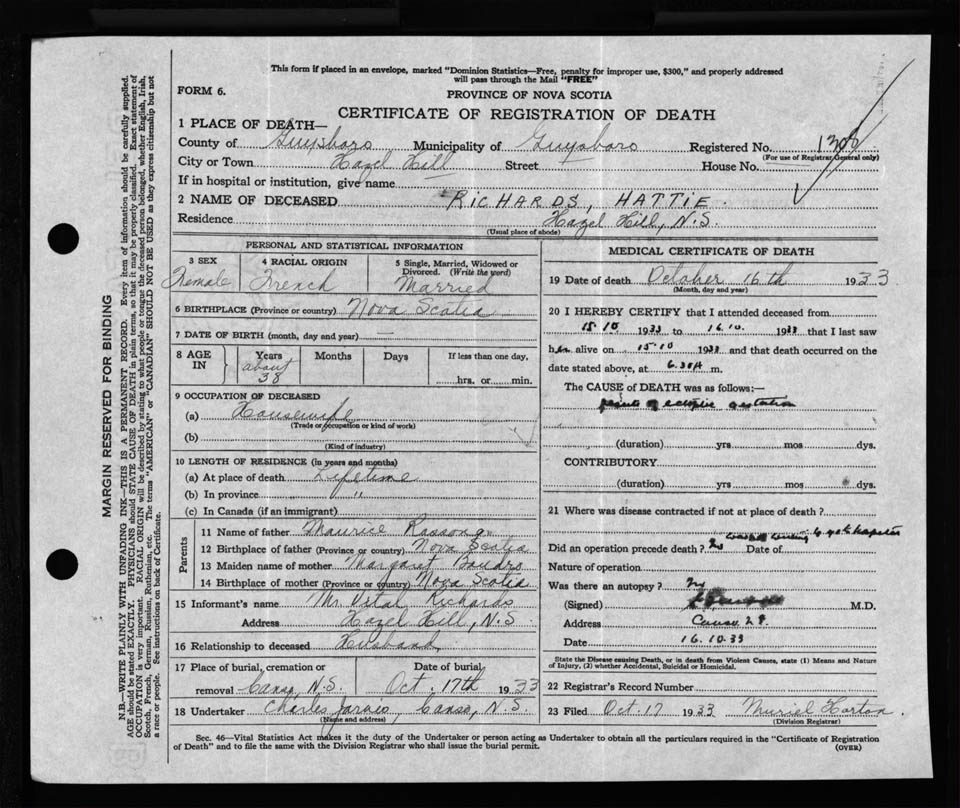 This form if placed in an envelope, marked "Dominion Statistics—Free, penalty for improper use, $300," and properly addressed
will pass through the Mail "FREE"
FORM 6.
PROVINCE OF NOVA SCOTIA
CERTIFICATE OF REGISTRATION OF DEATH
1 PLACE OF DEATH—
County of Guysboro Municipality of Guysboro Registered No.
(For use of Registrar General only)
City or Town Hazel Hill Street House No.
If in hospital or institution, give name
2 NAME OF DECEASED RICHARDS, HATTIE.
Residence Hazel Hill, N.S.
(Usual place of abode)
PERSONAL AND STATISTICAL INFORMATION
3 SEX
Female
4 RACIAL ORIGIN
French
5 Single, Married, Widowed or
Divorced. (Write the word)
Married
6 BIRTHPLACE (Province or country) Nova Scotia
7 DATE OF BIRTH (month, day and year)
8 AGE IN
Years
about
38
Months
Days
If less than one day,
hrs. or min.
9 OCCUPATION OF DECEASED
(a) Housewife
(Trade or occupation or kind of work)
(b)
(Kind of industry)
10 LENGTH OF RESIDENCE (in years and months)
(a) At place of death Lifetime
(b) In province " "
(c) In Canada (if an immigrant)
Parents
11 Name of father Maurice
12 Birthplace of father (Province or country) Nova Scotia
13 Maiden name of mother Margaret
14 Birthplace of mother (Province or country) Nova Scotia
15 Informant's name Mr. Vital Richards
Address Hazel Hill, N.S
16 Relationship to deceased Husband
17 Place of burial, cremation or
removal Canso, N.S.
Date of burial
Oct. 17th 1933
18 Undertaker Charles Canso, N.S.
(Name and address)
MEDICAL CERTIFICATE OF DEATH
19 Date of death October 16th 1933
(Month, day and year)
20 I HEREBY CERTIFY that I attended deceased from
15.10 1933 to 16.10. 1933 that I last saw
her alive on 15-10 1933 and that death occurred on the
date stated above, at 6.30A m.
The CAUSE of DEATH was as follows:—
(duration) yrs mos dys.
CONTRIBUTORY
(duration) yrs mos dys.
21 Where was disease contracted if not at place of death?
Did an operation precede death? No Date of
Nature of operation
Was there an autopsy?
(Signed) M.D.
Address Canso
Date 16.10.33
State the Disease causing Death, or in death from Violent Causes, state (1) Means and Nature
of Injury, (2) whether Accidental, Suicidal or Homicidal.
22 Registrar's Record Number
23 Filed Oct. 17 1933 Muriel Horton.
(Division Registrar)
Sec. 46—Vital Statistics Act makes it the duty of the Undertaker or person acting as Undertaker to obtain all the particulars required in the "Certificate of Registration
of Death" and to file the same with the Division Registrar who shall issue the burial permit.
(OVER)
MARGIN RESERVED FOR BINDING
N.B.—WRITE PLAINLY WITH UNFADING INK—THIS IS A PERMANENT RECORD. Every item of information should be carefully supplied.
AGE should be stated EXACTLY. PHYSICIANS should STATE CAUSE OF DEATH in plain terms, so that it may be properly classified. Exact statement of
OCCUPATION is very important. RACIAL ORIGIN will be described by stating to what people or tongue the deceased person belonged, whether English, Irish,
Scotch, French, German, Russian, Ruthenian, etc. The terms "AMERICAN" or "CANADIAN" SHOULD NOT BE USED as they express citizenship but not
a race or people. See instructions on back of Certificate.